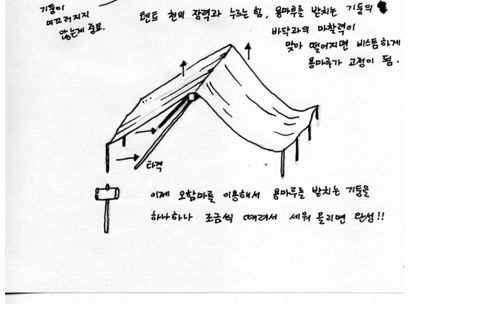 기둥이
미끄러지지
않는게 중요.
텐트 천의 장력과 누르는 힘, 용마루를 받치는 기둥의
바닥과의 마찰력이
맞아 떨어지면 비스듬하게
용마루가 고정이 됨.
타격
이제 오함마를 이용해서 용마루를 받치는 기둥을
하나하나 조금씩 때려서 세워 올리면 완성!!